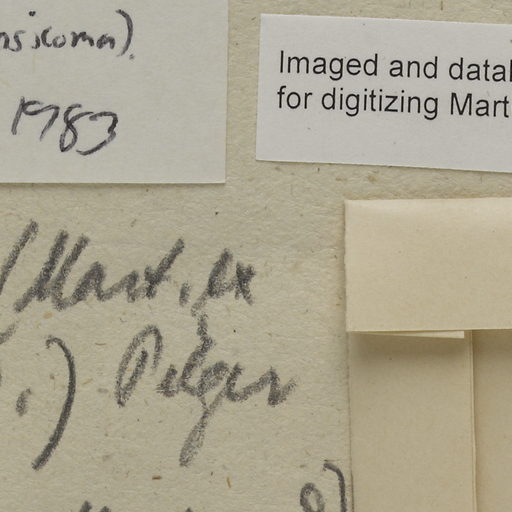 nsicoma).
1983
Imaged and datal
for digitizing Mart
(Mart. ex
.) Pilger